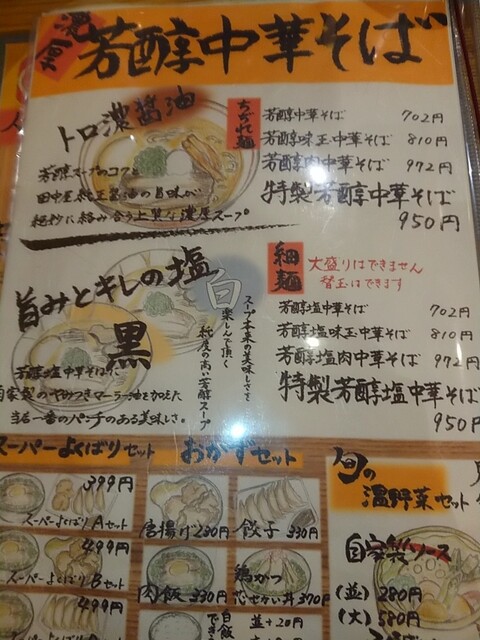 芳醇中華そば
トロ濃醤油
芳醇スープのコクと
田中屋純正醤油の旨味が
絶妙に絡み合う上質な濃厚スープ
ちぢれ麺
芳醇中華そば 702円
芳醇味玉中華そば 810円
芳醇肉中華そば 972円
特製芳醇中華そば
950円
旨みとキレの塩
白
スープ本来の美味しさを
楽しんで頂く
純度の高い芳醇スープ
黒
芳醇塩中華そばに
自家製のやみつきマーラー油を加えた
当店一番のパンチのある美味しさ。
細麺
大盛りはできません
替玉はできます
芳醇塩中華そば 702円
芳醇塩味玉中華そば 810円
芳醇塩肉中華そば 972円
特製芳醇塩中華そば
950円
スーパーよくばりセット
399円
スーパーよくばりAセット
499円
スーパーよくばりBセット
499円
おかずセット
唐揚げ230円
餃子 330円
肉飯 330円
鶏かつ
セせかい丼370円
白飯
並+20円
旬の
温野菜セット
自家製ソース
(並) 280円
(大) 580円